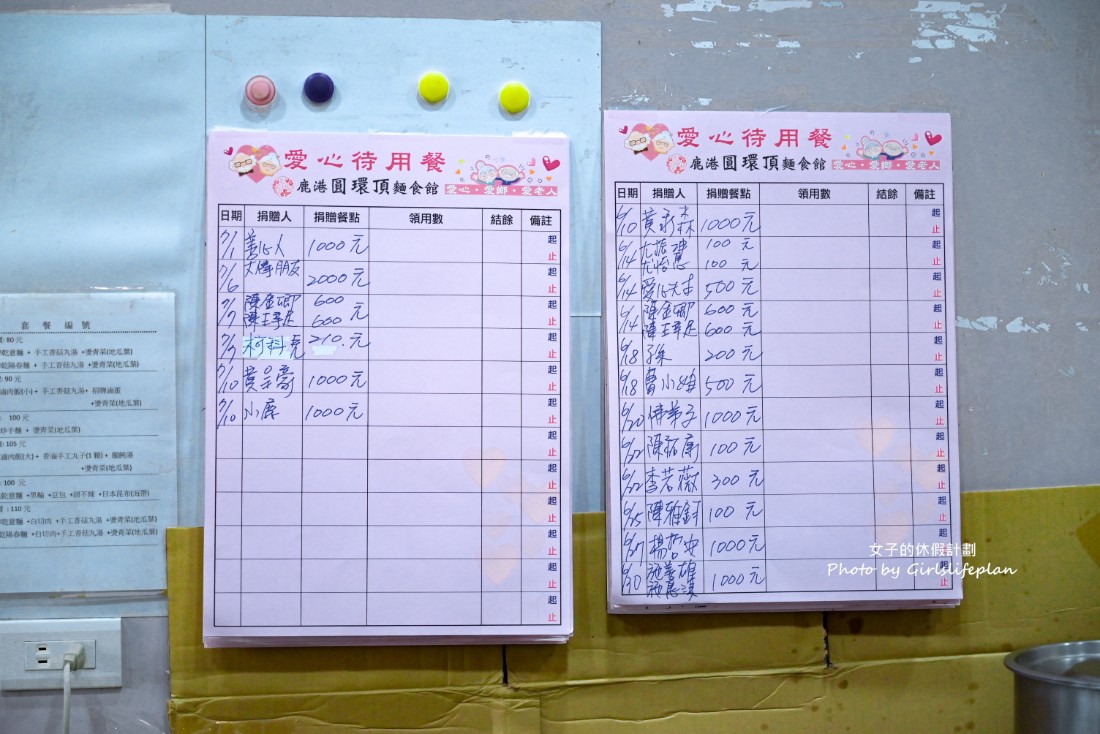 愛心待用餐
鹿港圓環頂麵食館
愛心・愛鄉・愛老人
日期 捐贈人 捐贈餐點 領用數 結餘 備註
7/1 善心人 1000元 起止
7/6 朋友 2000元 起止
7/7 陳金卿 600元 起止
陳王 600
7/9 柯 210.元 起止
7/10 黃 1000元 起止
7/10 小 1000元 起止
起止
起止
起止
起止
起止
起止
愛心待用餐
鹿港圓環頂麵食館
愛心・愛鄉・愛老人
日期 捐贈人 捐贈餐點 領用數 結餘 備註
6/10 黃永森 1000元 起止
6/14 尤振 100元 起止
尤 100元
6/14 愛心夫才 500元 起止
6/14 陳金卿 600元 起止
陳王 600元
6/18 200元 起止
6/18 曾小 500元 起止
6/20 佛弟子 1000元 起止
6/22 陳 100元 起止
6/22 李若薇 300元 起止
6/25 陳雅 100元 起止
6/27 楊哲安 1000元 起止
6/30 施善雄 1000元 起止
施
套餐編號
80元
乾意麵 + 手工香菇丸湯 +燙青菜(地瓜葉)
乾陽春麵 + 手工香菇丸湯 +燙青菜(地瓜葉)
90元
滷肉飯(小)+ 手工香菇丸湯+ 招牌滷蛋
+燙青菜(地瓜葉)
100元
炒手麵 +燙青菜(地瓜葉)
105元
滷肉飯(大)+ 香滷手工丸子(1顆)+ 餛飩湯
+燙青菜(地瓜葉)
100元
乾意麵 +黑輪 +豆包 +甜不辣 +日本昆布(海帶)
:110元
乾意麵 +白切肉 +手工香菇丸湯 +燙青菜(地瓜葉)
乾陽春麵 +白切肉+手工香菇丸湯 +燙青菜(地瓜葉)
女子的休假計劃
Photo by Girlslifeplan